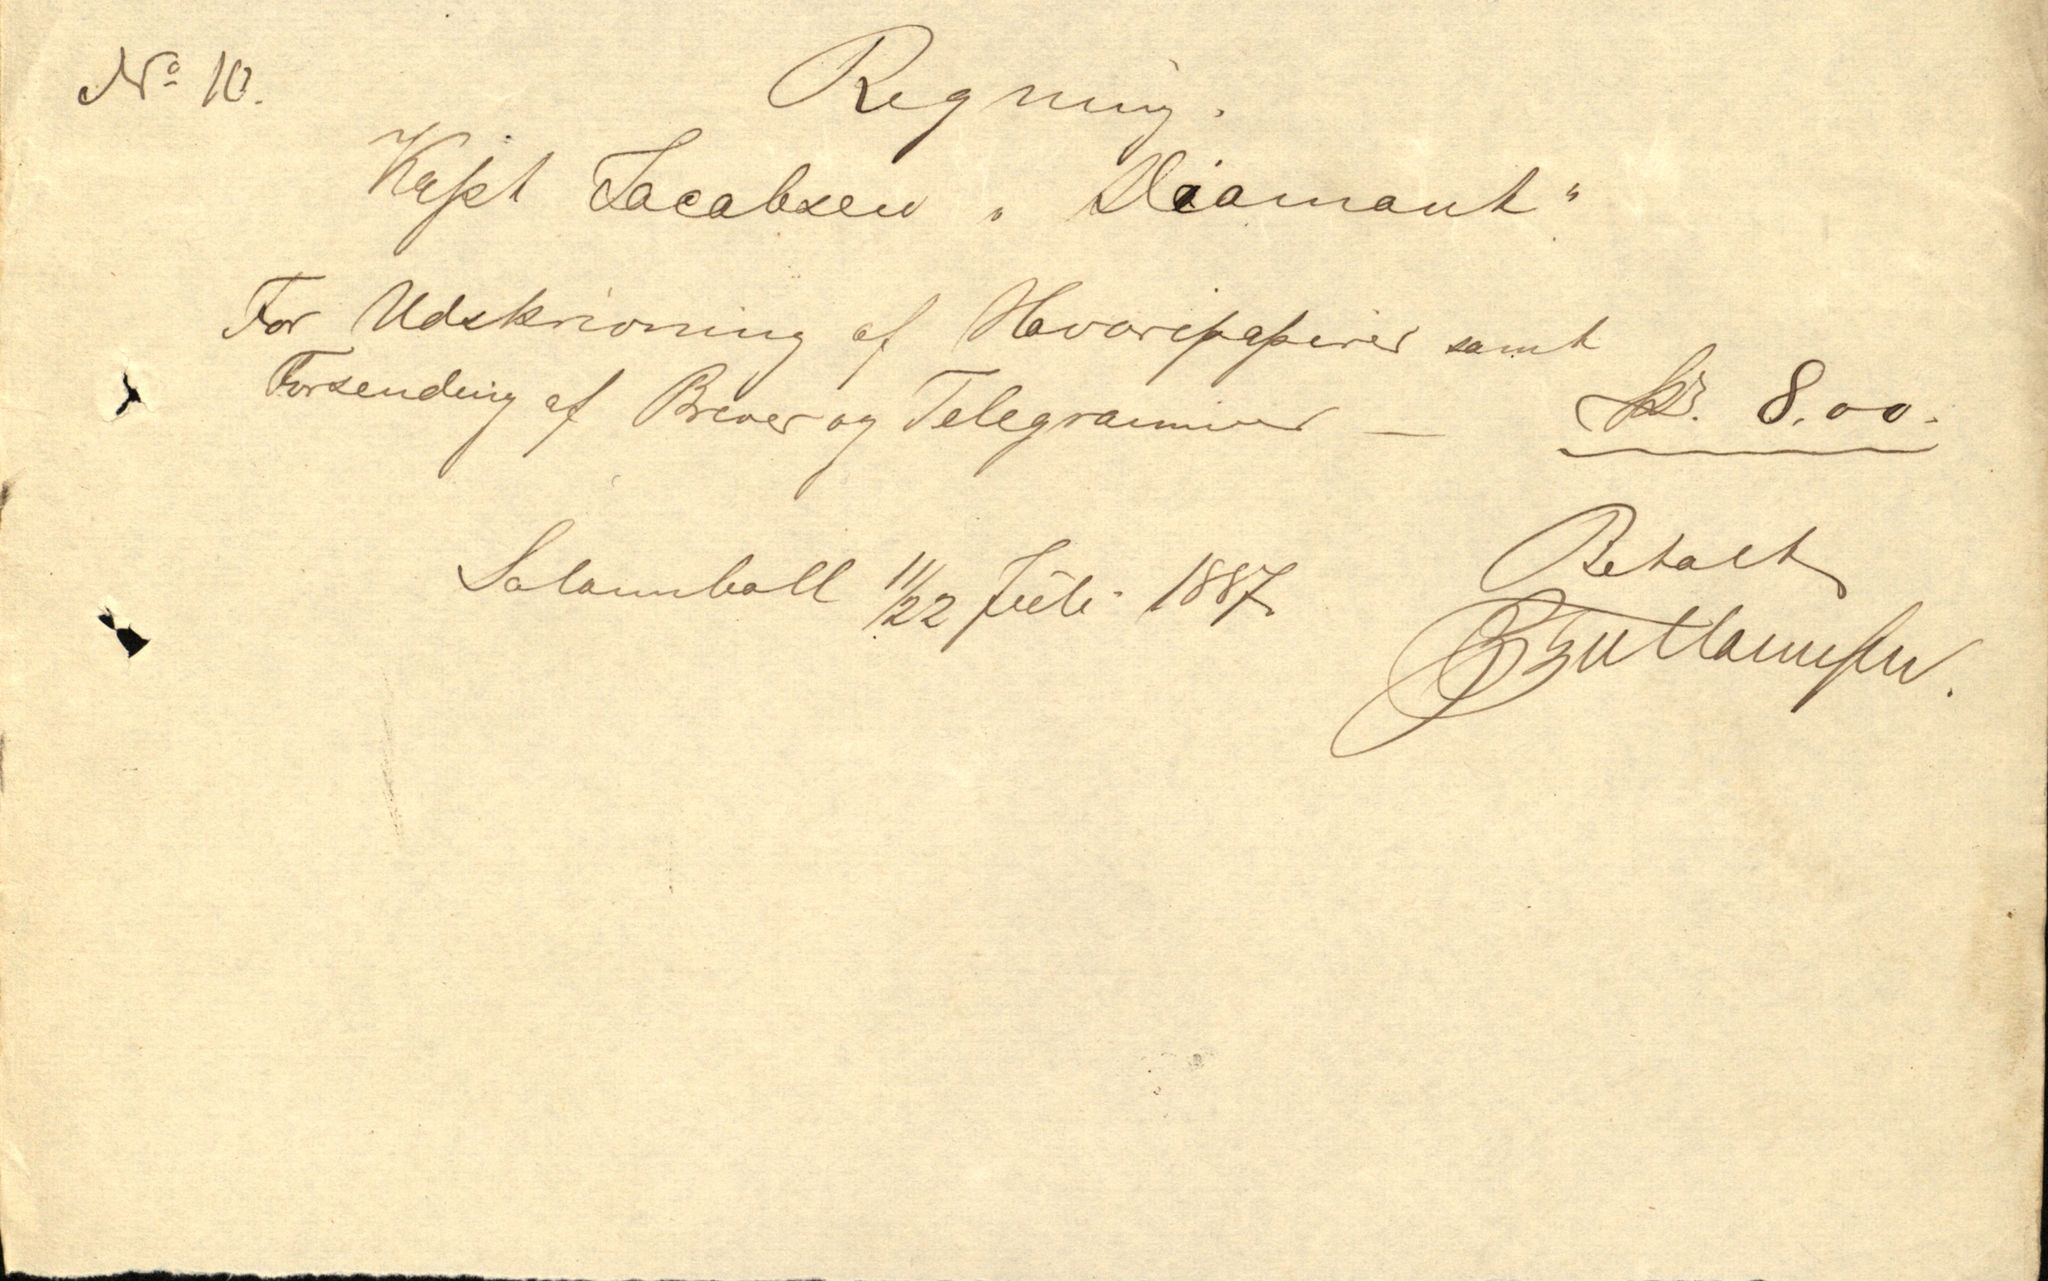 No 10.
Regning.
Kapt Jacobsen „Diamant“
For Udskrivning af Havaripapirer samt
Forsending af Brever og Telegrammer — Kr. 8.00.
Solomboll 11/22 Juli 1887.
Betalt